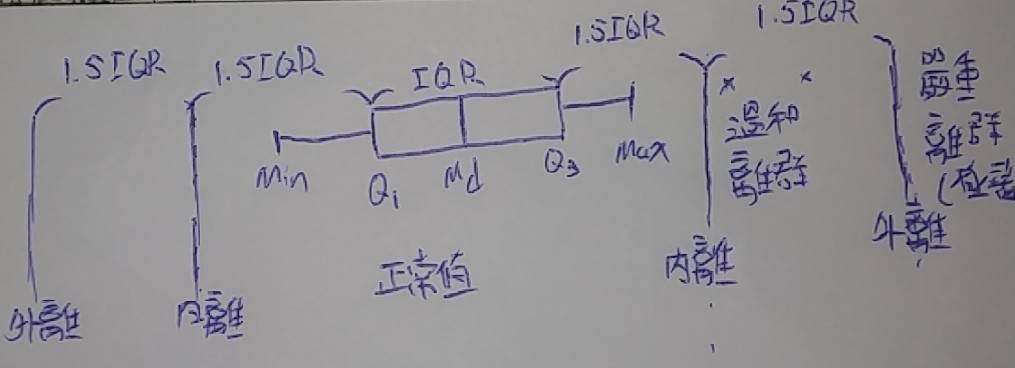 1.5IQR 1.5IQR IQR 1.5IQR 1.5IQR
Min Q₁ Md Q₃ Max
溫和
離群
嚴重
離群
(極端
外離 內離 正常值 內離 外離